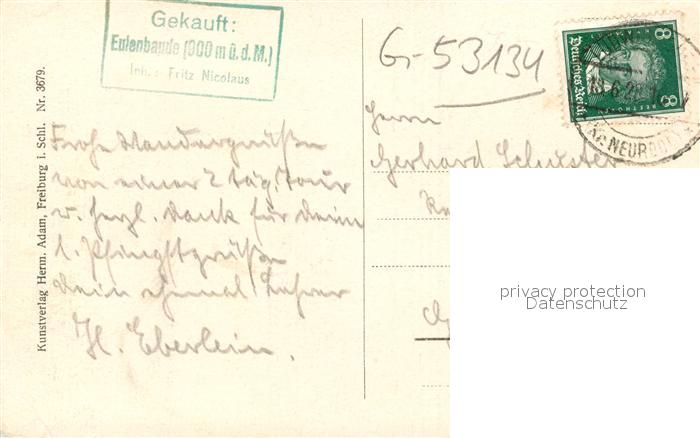 Gekauft:
Eulenbaude (900 m ü. d. M.)
Inh.: Fritz Nicolaus
G-53134
8 8
Deutsches Reich
BEETHOVEN
NEUROD
Kunstverlag Herm. Adam, Freiburg i. Schl. Nr. 3679.
Frohe Wandergrüße
von einer 2 täg. Tour
u. herzl. Dank für Deine
l. Pfingstgrüße
Dein ehmal. Lehrer
Eberlein.
Herrn
Gerhard Schuster
privacy protection
Datenschutz